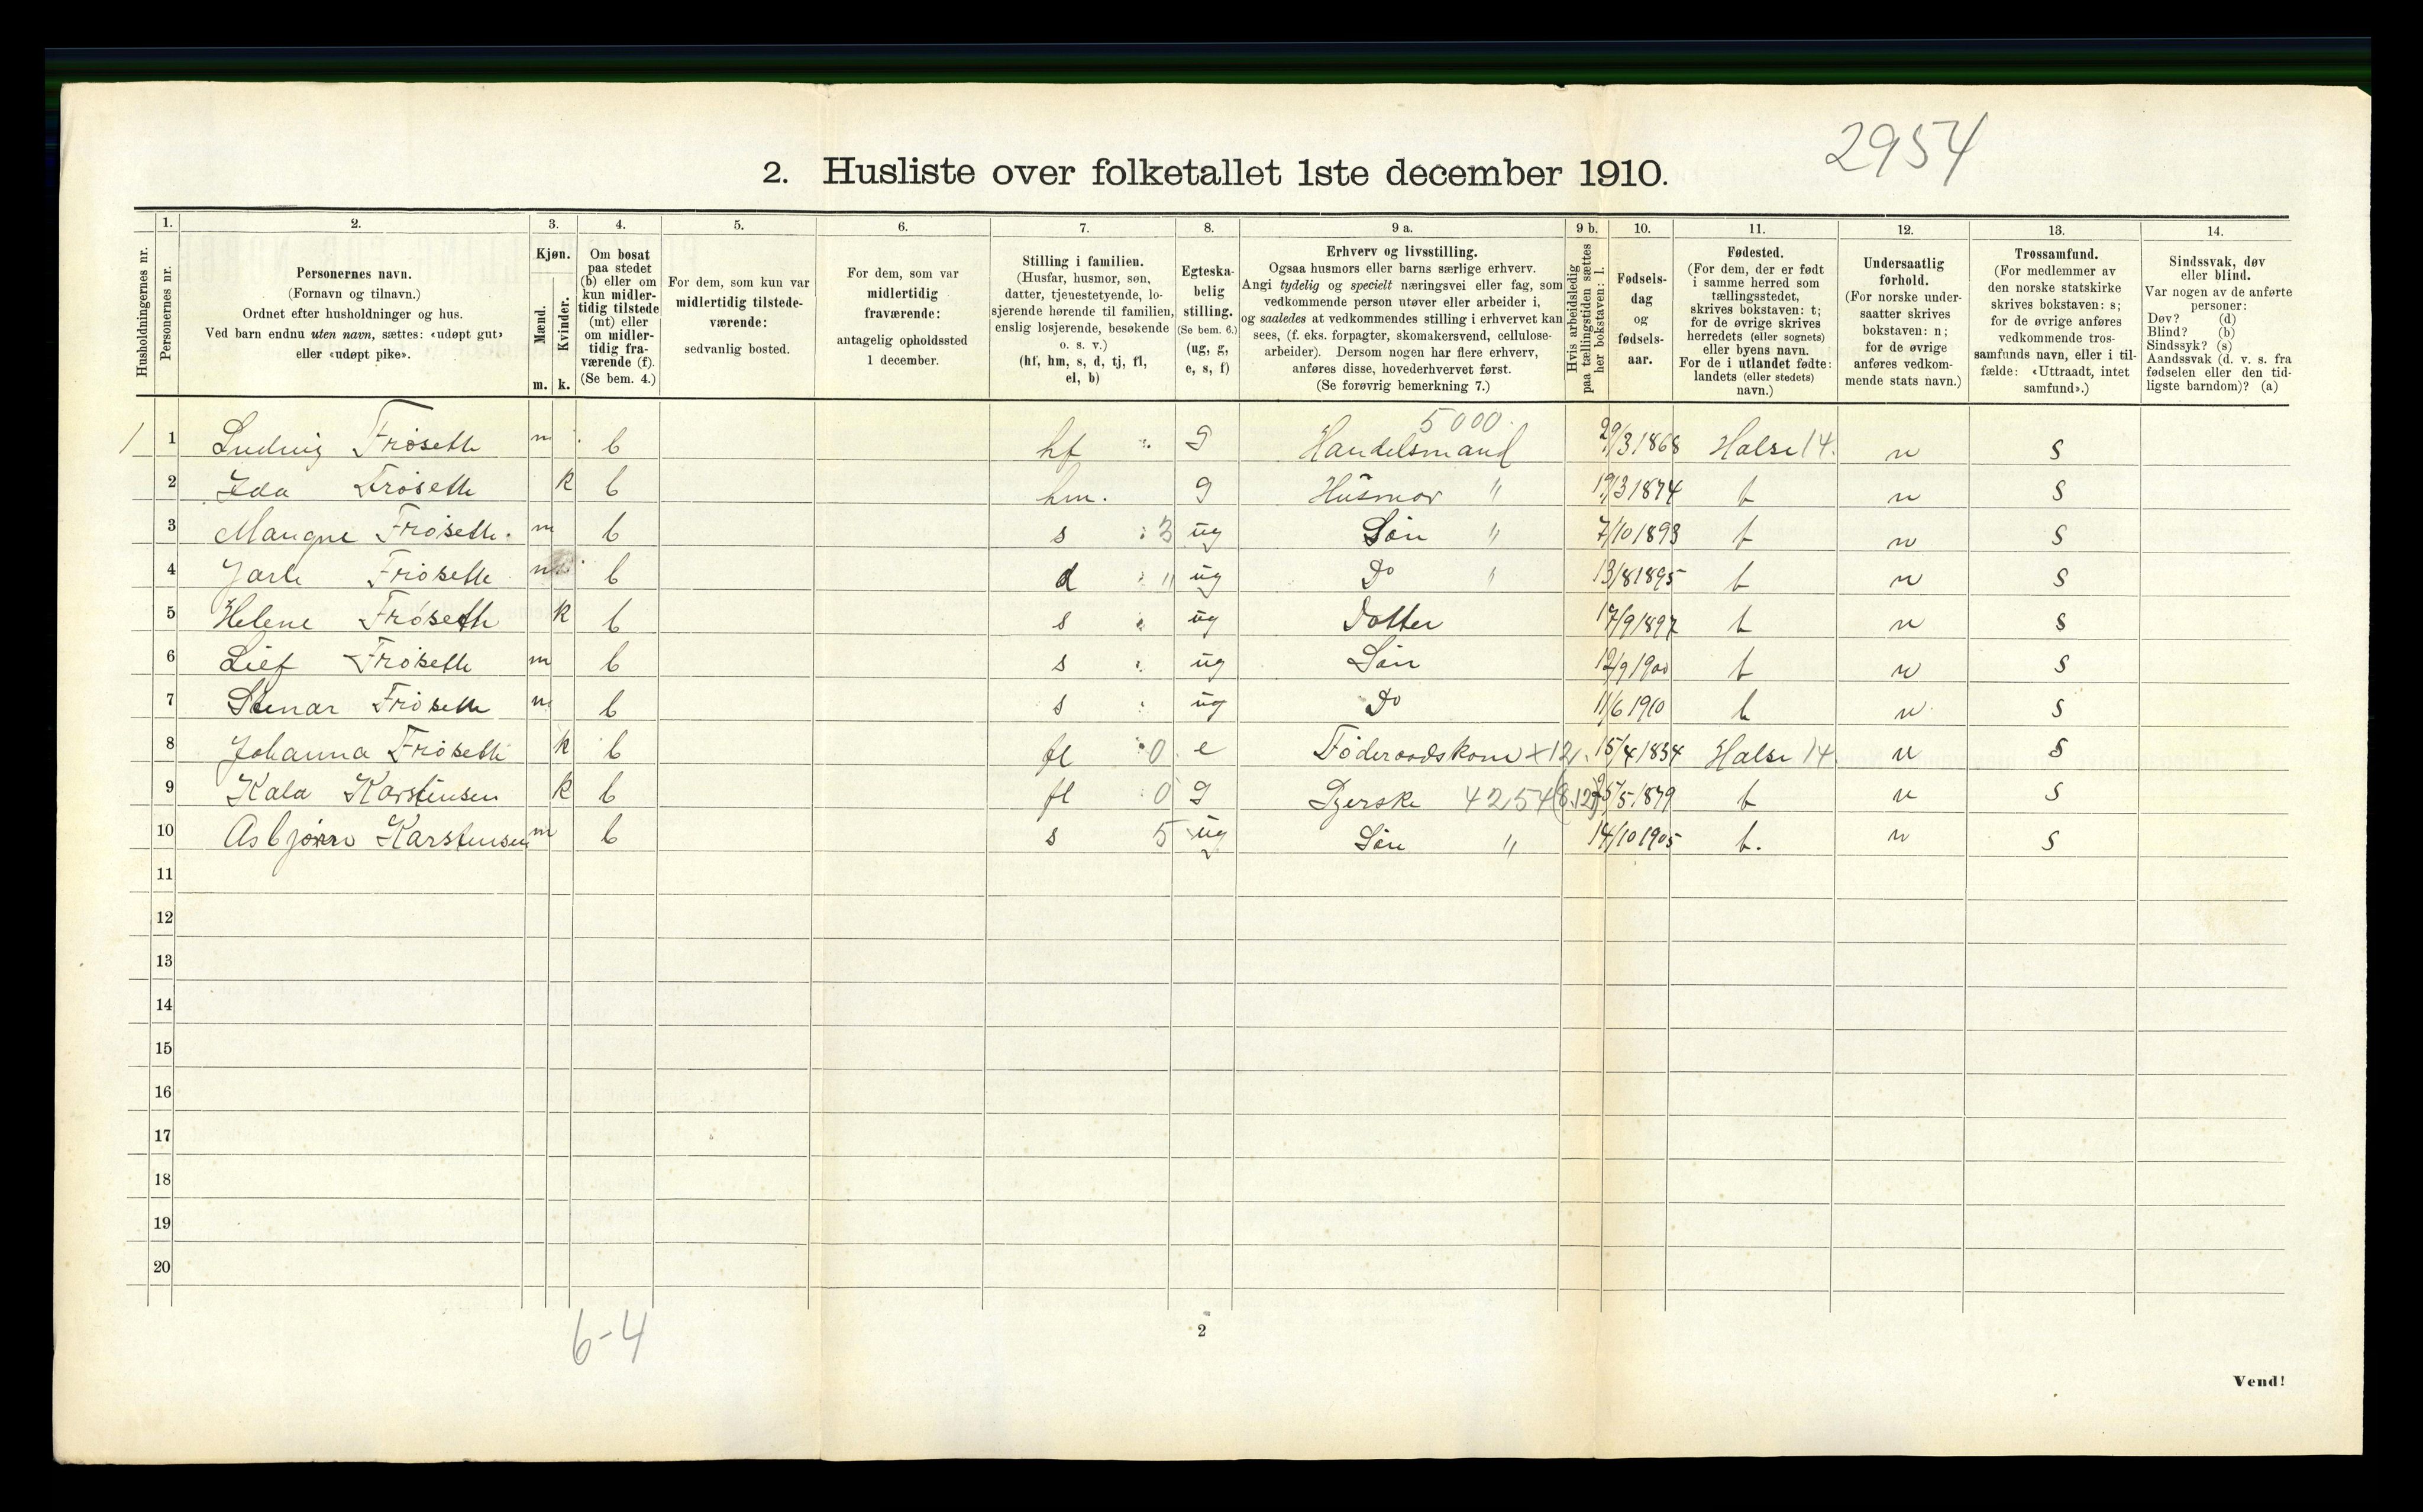 2954
2. Husliste over folketallet 1ste december 1910.
Husholdningernes nr.
1.
Personernes nr.
2.
Personernes navn.
(Fornavn og tilnavn.)
Ordnet efter husholdninger og hus.
Ved barn endnu uten navn, sættes: «udøpt gut»
eller «udøpt pike».
3.
Kjøn.
Mænd.
Kvinder.
m. k.
4.
Om bosat
paa stedet
(b) eller om
kun midler-
tidig tilstede
(mt) eller
om midler-
tidig fra-
værende (f).
(Se bem. 4.)
5.
For dem, som kun var
midlertidig tilstede-
værende:
sedvanlig bosted.
6.
For dem, som var
midlertidig
fraværende:
antagelig opholdssted
1 december.
7.
Stilling i familien.
(Husfar, husmor, søn,
datter, tjenestetyende, lo-
sjerende hørende til familien,
enslig losjerende, besøkende
o. s. v.)
(hf, hm, s, d, tj, fl,
el, b)
8.
Egteska-
belig
stilling.
(Se bem. 6.)
(ug, g,
e, s, f)
9 a.
Erhverv og livsstilling.
Ogsaa husmors eller barns særlige erhverv.
Angi tydelig og specielt næringsvei eller fag, som
vedkommende person utøver eller arbeider i,
og saaledes at vedkommendes stilling i erhvervet kan
sees, (f. eks. forpagter, skomakersvend, cellulose-
arbeider). Dersom nogen har flere erhverv,
anføres disse, hovederhvervet først.
(Se forøvrig bemerkning 7.)
9 b.
Hvis arbeidsledig
paa tællingstiden sættes
her bokstaven: l.
10.
Fødsels-
dag
og
fødsels-
aar.
11.
Fødested.
(For dem, der er født
i samme herred som
tællingsstedet,
skrives bokstaven: t;
for de øvrige skrives
herredets (eller sognets)
eller byens navn.
For de i utlandet fødte:
landets (eller stedets)
navn.)
12.
Undersaatlig
forhold.
(For norske under-
saatter skrives
bokstaven: n;
for de øvrige
anføres vedkom-
mende stats navn.)
13.
Trossamfund.
(For medlemmer av
den norske statskirke
skrives bokstaven: s;
for de øvrige anføres
vedkommende tros-
samfunds navn, eller i til-
fælde: «Uttraadt, intet
samfund».)
14.
Sindssvak, døv
eller blind.
Var nogen av de anførte
personer:
Døv? (d)
Blind? (b)
Sindssyk? (s)
Aandssvak (d. v. s. fra
fødselen eller den tid-
ligste barndom)? (a)
5000
1 1 Ludvig Frøseth m b hf g Handelsmand 29/3 1868 Halse 14. n s
2 Ida Frøseth k b hm. g Husmor " 19/3 1874 t n s
3 Mangne Frøseth. m b s 3 ug Søn " 7/10 1893 t n s
4 Jarle Frøseth m b d " ug Do " 13/8 1895 t n s
5 Helene Frøseth k b s ug Dotter 17/9 1897 t n s
6 Lief Frøseth m b s ug Søn 12/9 1900 t n s
7 Stenar Frøseth m b s ug Do 11/6 1910 t n s
8 Johanna Frøseth k b fl 0 e Føderaadskone x 12. 15/4 1834 Halse 14 n s
9 Kala Karstensen k b fl 0 g 4254 (8.12) 5/5 1879 t n s
10 Asbjørn Karstensen m b s 5 ug Søn " 14/10 1905 t. n s
11
12
13
14
15
16
17
18
19
20
6-4
2
Vend!